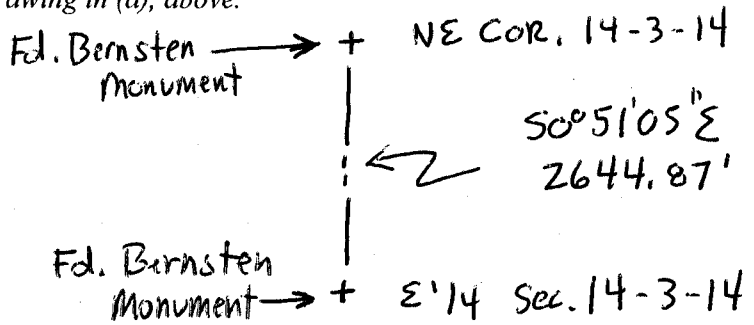 awing in (a), above.
Fd. Bernsten Monument
+ NE COR. 14-3-14
S0°51'05"E
2644.87'
Fd. Bernsten Monument
+ E 1/4 Sec. 14-3-14